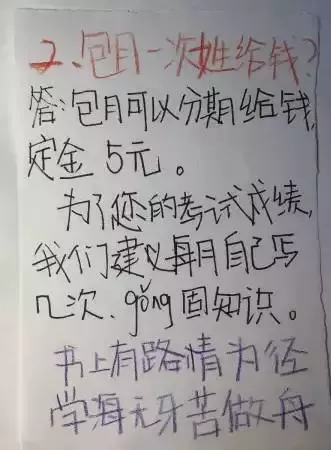 2、包月一次姓给钱?
答:包月可以分期给钱,
定金 5元。
为了您的考试成绩,
我们建议每月自己写
几次、gǒng固知识。
书上有路情为径
学海无牙苦做舟